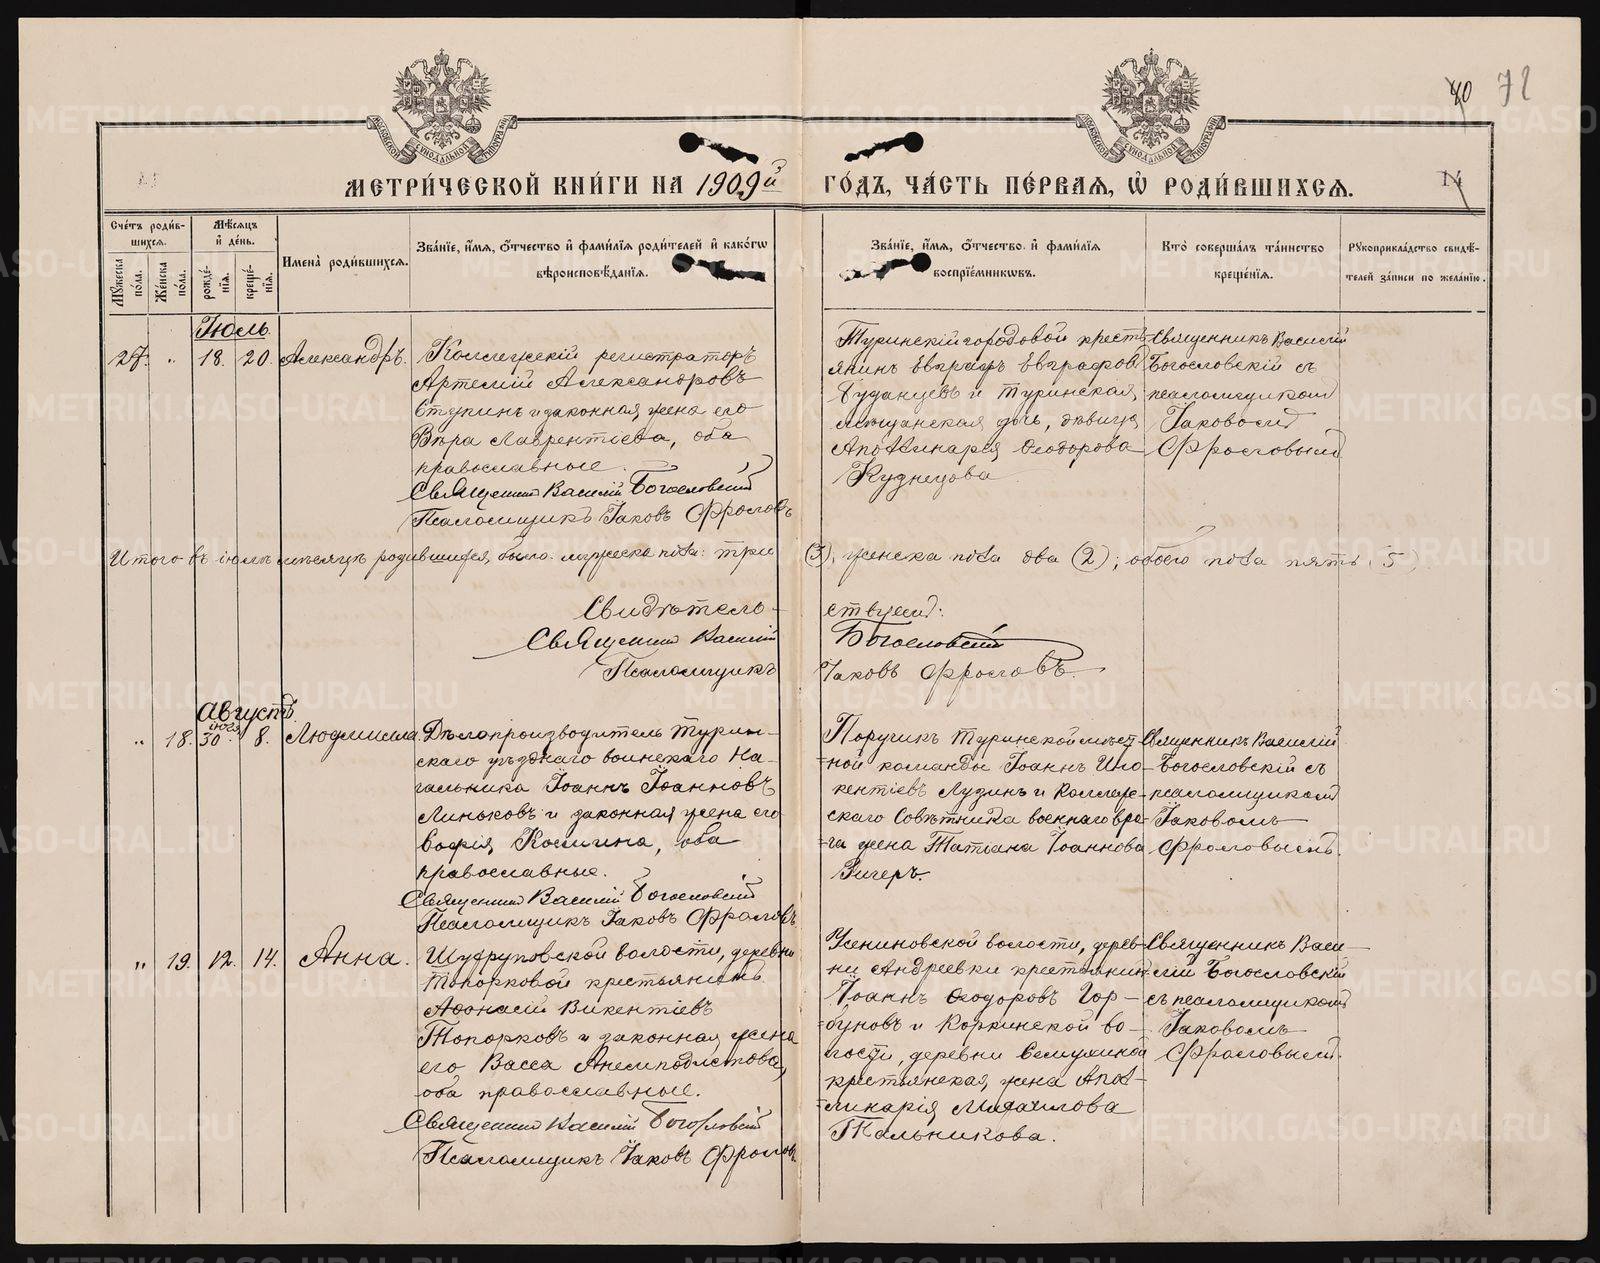 40 72
МЕТРИ́ЧЕСКОЙ КНИ́ГИ НА 1909й ГО́ДЪ, ЧА́СТЬ ПЕ́РВАЯ, Ѽ РОДИ́ВШИХСЯ.
Сче́тъ роди́в-
шихся.
Мѣ́сяцъ
и҆ де́нь.
Мꙋ́жеска по́ла.
Же́нска по́ла.
рожде́-
нїя.
креще́-
нїя.
Имена̀ роди́вшихся.
Зва́нїе, и҆́мя, ѻ҆́тчество и҆ фами́лїѧ роди́телей и҆ како́гѡ
вѣроисповѣ́данїѧ.
Зва́нїе, и҆́мя, ѻ҆́тчество и҆ фами́лїѧ
воспрїе́мникѡвъ.
Кто̀ соверша́лъ та́инство
креще́нїѧ.
Рꙋкоприкла́дство свидѣ́-
телей за́писи по жела́нїю.
Іюль.
27. „ 18. 20. Александръ.
Коллежскій регистраторъ
Артемій Александровъ
Ступинъ и законная жена его
Вѣра Лаврентіева, оба
православные.
Священникъ Василій Богословскій
Псаломщикъ Іаковъ Фроловъ
Туринскій городовой кресть-
янинъ Евграфъ Евграфовъ
Буданцевъ и Туринская
мѣщанская дочь, дѣвица
Аполлинарія Ѳеодорова
Кузнецова
Священникъ Василій
Богословскій съ
псаломщикомъ
Іаковомъ
Фроловымъ
Итого въ іюлѣ мѣсяцѣ родившихся было: мужеска пола: три (3); женска пола два (2); обоего пола пять (5)
Свидѣтель-ствуемъ:
Священникъ Василій Богословскій
Псаломщикъ Іаковъ Фроловъ.
Августъ.
„ 18. іюля 30. 8. Людмилла.
Дѣлопроизводитель Турин-
скаго уѣзднаго воинскаго На-
чальника Іоаннъ Іоанновъ
Линьковъ и законная жена его
Софія Космина, оба
православные.
Священникъ Василій Богословскій
Псаломщикъ Іаковъ Фроловъ
Поручикъ Туринской мѣст-
ной команды Іоаннъ Ино-
кентіевъ Лудинъ и Коллеж-
скаго Совѣтника военнаго вра-
ча жена Татіана Іоаннова
Ригеръ.
Священникъ Василій
Богословскій съ
псаломщикомъ
Іаковомъ
Фроловымъ.
„ 19. 12. 14. Анна.
Шуфруковской волости, деревни
Топорковой крестьянинъ
Аѳонасій Викентіевъ
Топорковъ и законная жена
его Васса Анемподистова,
оба православные.
Священникъ Василій Богословскій
Псаломщикъ Іаковъ Фроловъ
Усениновской волости, дерев-
ни Андреевки крестьянинъ
Іоаннъ Ѳеодоровъ Гор-
буновъ и Коркинской во-
лости, деревни Семухиной
крестьянская жена Апол-
линарія Михаилова
Тальникова.
Священникъ Васи-
лій Богословскій
съ псаломщикомъ
Іаковомъ
Фроловымъ.